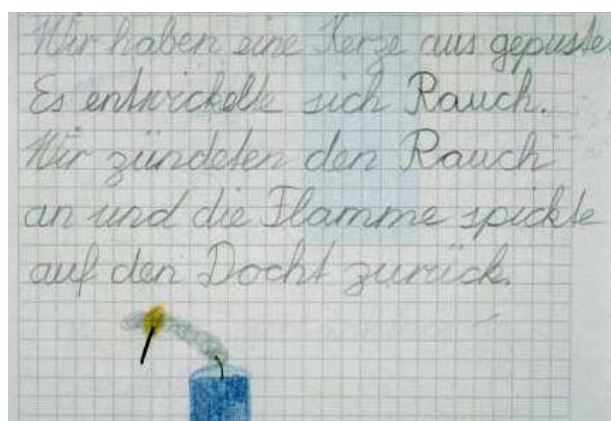 Wir haben eine Kerze aus gepuste
Es entwickelte sich Rauch.
Wir zündeten den Rauch
an und die Flamme spickte
auf den Docht zurück.